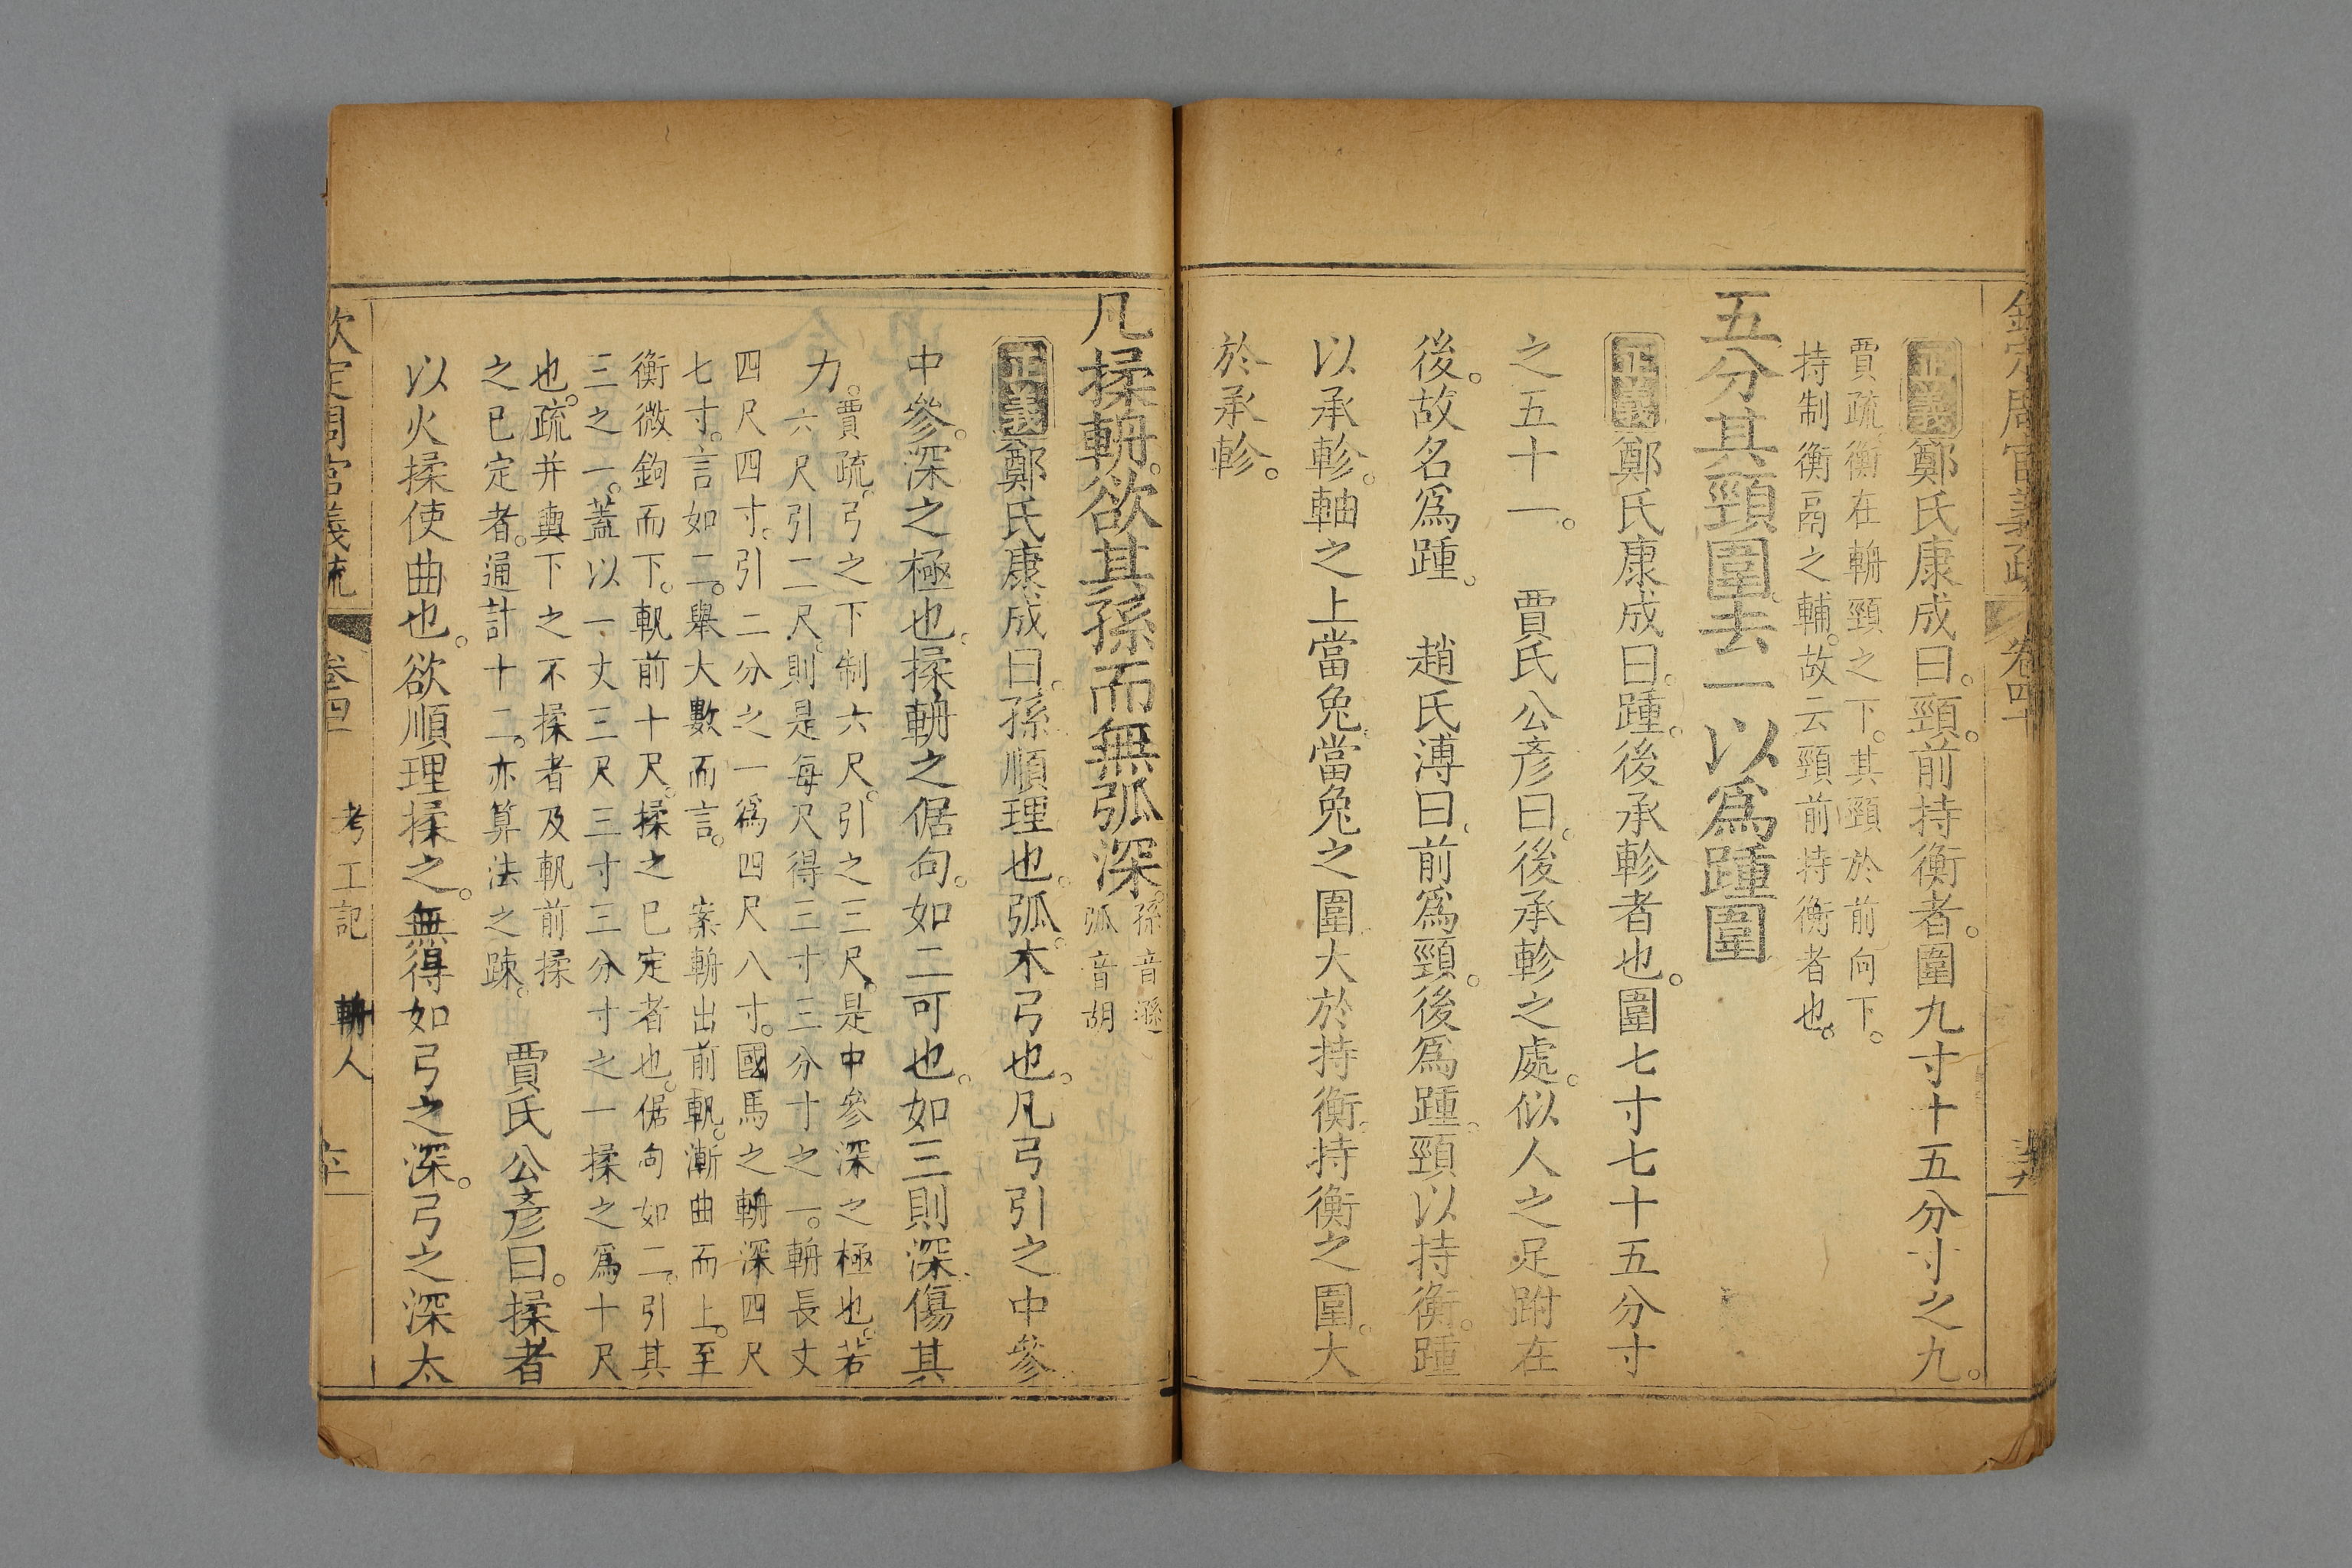 欽定周官義疏 卷四十
正義鄭氏康成曰。頸。前持衡者。圍九寸十五分寸之九。
賈疏。衡在輈頸之下。其頸於前向下。
持制衡鬲之輔。故云頸前持衡者也。
五分其頸圍。去一以爲踵圍
正義鄭氏康成曰。踵。後承軫者也。圍七寸七十五分寸
之五十一。 賈氏公彦曰。後承軫之處。似人之足跗在
後。故名爲踵。 趙氏溥曰。前爲頸。後爲踵。頸以持衡。踵
以承軫。軸之上當兔。當兔之圍大於持衡。持衡之圍。大
於承軫。
凡揉輈。欲其孫而無弧深。
孫音遜
弧音胡
正義鄭氏康成曰。孫順理也。弧。木弓也。凡弓引之中參
中參。深之極也。揉輈之倨句。如二可也。如三則深。傷其
力。
賈疏。弓之下制六尺。引之三尺。是中參深之極也。若
六尺引二尺。則是每尺得三寸三分寸之一。輈長丈
四尺四寸。引二分之一爲四尺八寸。國馬之輈深四尺
七寸。言如二。舉大數而言。 案輈出前軓。漸曲而上。至
衡微鉤而下。軓前十尺。揉之已定者也。倨向如二。引其
三之一。蓋以一丈三尺三寸三分寸之一揉之爲十尺
也。疏并輿下之不揉者及軓前揉
之已定者。通計十二。亦算法之疎。
賈氏公彦曰。揉者
以火揉使曲也。欲順理揉之。無得如弓之深。弓之深太
欽定周官義疏 卷四十 考工記 輈人